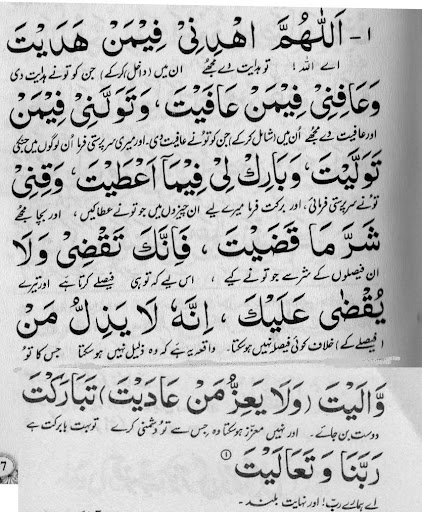 ۱- اَللّٰهُمَّ اهْدِنِيْ فِيْمَنْ هَدَيْتَ
اے اللہ! تو ہدایت دے مجھے ان میں (داخل کر کے) جن کو تو نے ہدایت دی
وَعَافِنِيْ فِيْمَنْ عَافَيْتَ، وَتَوَلَّنِيْ فِيْمَنْ
اور عافیت دے مجھے اُن میں (شامل کر کے) جن کو تُو نے عافیت دی، اور میری سرپرستی فرما اُن لوگوں میں جنکی
تَوَلَّيْتَ، وَبَارِكْ لِيْ فِيْمَآ اَعْطَيْتَ، وَقِنِيْ
تُو نے سرپرستی فرمائی، اور برکت فرما میرے لیے ان چیزوں میں جو تو نے عطا کیں، اور بچا مجھے
شَرَّ مَا قَضَيْتَ، فَاِنَّكَ تَقْضِيْ وَلَا
ان فیصلوں کے شر سے جو تو نے کیے، اس لیے کہ تو ہی فیصلے کرتا ہے اور تیرے
يُقْضٰى عَلَيْكَ، اِنَّهٗ لَا يَذِلُّ مَنْ
(فیصلے کے) خلاف کوئی فیصلہ نہیں ہو سکتا۔ واقعہ یہ ہے کہ وہ ذلیل نہیں ہو سکتا جس کا تُو
وَّالَيْتَ (وَلَا يَعِزُّ مَنْ عَادَيْتَ) تَبَارَكْتَ
دوست بن جائے۔ اور نہیں معزز ہو سکتا وہ، جس سے تُو دشمنی کرے تو بہت با برکت ہے
رَبَّنَا وَتَعَالَيْتَ ①
اے ہمارے رب! اور نہایت بلند۔
7